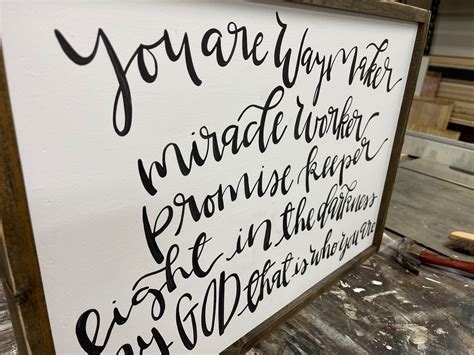 You are Way Maker
miracle worker
promise keeper
light in the darkness
my GOD that is who you are